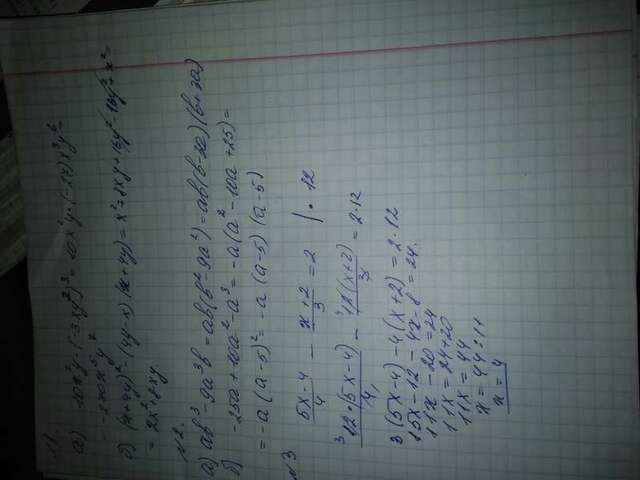 №1.
а) 10x²y · (-3xy²)³ = 10x²y · (-27)x³y⁶
= -270x⁵y⁷
б) (x+4y)² - (4y-x)(x+4y) = x²+8xy+16y²-16y²+x²=
= 2x²+8xy
№2.
а) ab³-9a³b = ab(b²-9a²) = ab(b-3a)(b+3a)
б) -25a+10a²-a³ = -a(a²-10a+25) =
= -a(a-5)² = -a(a-5)(a-5)
№3
5x-4/4 - x+2/3 = 2 | · 12
³12·(5x-4)/4 - ⁴12(x+2)/3 = 2·12
3(5x-4)-4(x+2) = 2·12
15x-12-4x-8=24.
11x-20=24
11x=24+20
11x=44
x=44:11
x=4